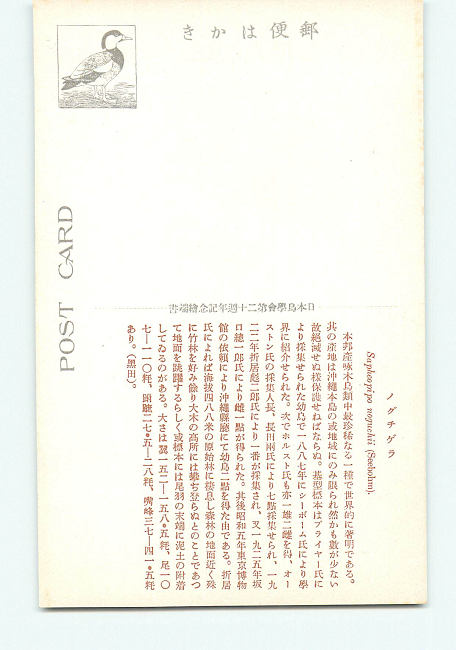 郵便はかき
POST CARD
日本鳥學會第二十週年記念繪端書
ノグチゲラ
Sapheopipo noguchii (Seebohm).
本邦產啄木鳥類中最珍稀なる一種で世界的に著明である。
其の產地は沖繩本島の或地域にのみ限られ然かも數が少ない
故絕滅せぬ樣保護せねばならぬ。基型標本はプライヤー氏に
より採集せられた幼鳥で一八八七年にシーボーム氏により學
界に紹介せられた。次でホルスト氏も亦一雄二雌を得、オー
ストン氏の採集人長、長田兩氏により七點採集せられ、一九
二二年折居彪二郎氏により一番が採集され、又一九二五年坂
口總一郎氏により雌一點が得られた。其後昭和五年東京博物
館の依賴により沖繩縣廳にて幼鳥二點を得た由である。折居
氏によれば海拔四八八米の原始林に棲息し森林の地面近く殊
に竹林を好み餘り大木の高所には攀ぢ登らぬとのことであつ
て地面を跳躍するらしく或標本には尾羽の末端に泥土の附着
してゐるのがある。大さは翼一五二―一五八•五粍、尾一〇
七―一一〇粍、跗蹠二七•五―二八粍、嘴峰三七―四一•五粍
あり。(黑田)。